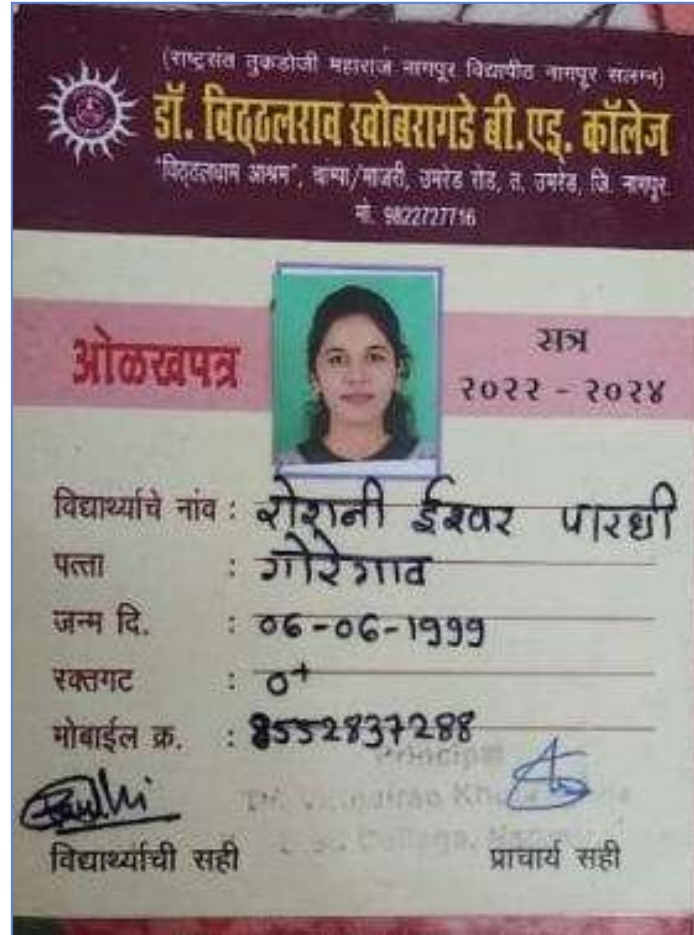 (राष्ट्रसंत तुकडोजी महाराज नागपूर विद्यापीठ नागपूर संलग्न)
डॉ. विठ्ठलराव खोबरागडे बी.एड्. कॉलेज
"विठ्ठलधाम आश्रम", चाम्पा/माजरी, उमरेड रोड, त. उमरेड, जि. नागपूर.
मो. 9822727716
ओळखपत्र
सत्र
२०२२ - २०२४
विद्यार्थ्याचे नांव : रोशनी ईश्वर पारधी
पत्ता : गोरेगाव
जन्म दि. : 06-06-1999
रक्तगट : O+
मोबाईल क्र. : 8552837288
Principal
College,
विद्यार्थ्याची सही
प्राचार्य सही